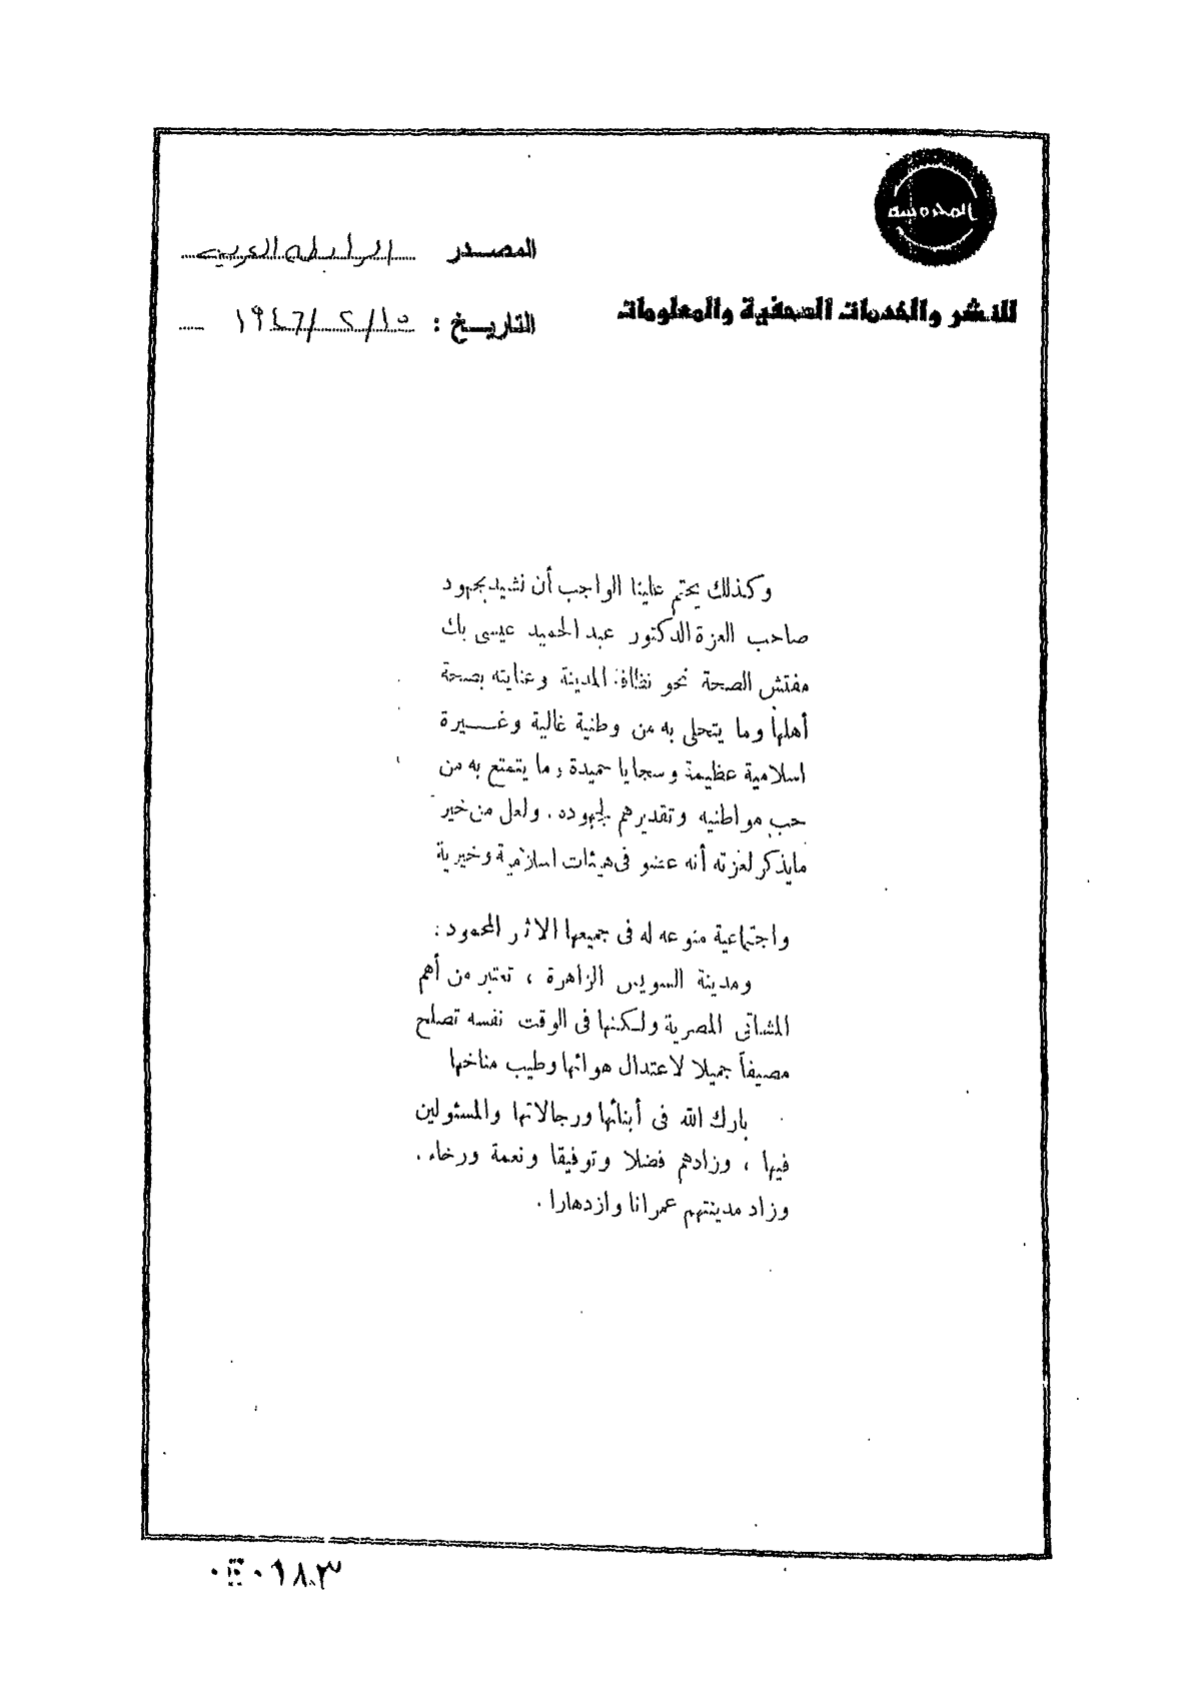 المحروسة
للنشر والخدمات الصحفية والمعلومات
المصدر الرابطة العربية
التاريخ : ١٩٤٦/٢/١٥
وكذلك يحتم علينا الواجب أن نشيد بجهود
صاحب العزة الدكتور عبد الحميد عيسى بك
مفتش الصحة نحو نظافة المدينة وعنايته بصحة
أهلها وما يتحلى به من وطنية غالية وغيرة
اسلامية عظيمة وسجايا حميدة وما يتمتع به من
حب مواطنيه وتقديرهم لجهوده . ولعل من خير
مايذكر لعزته أنه عضو فى هيئات اسلامية وخيرية
واجتماعية منوعه له فى جميعها الاثر المحمود .
ومدينة السويس الزاهرة ، تعتبر من أهم
المشاتى المصرية ولكنها فى الوقت نفسه تصلح
مصيفاً جميلا لاعتدال هوائها وطيب مناخها
بارك الله فى أبنائها ورجالاتها والمسئولين
فيها ، وزادهم فضلا وتوفيقا ونعمة ورخاء .
وزاد مدينتهم عمرانا وازدهارا .